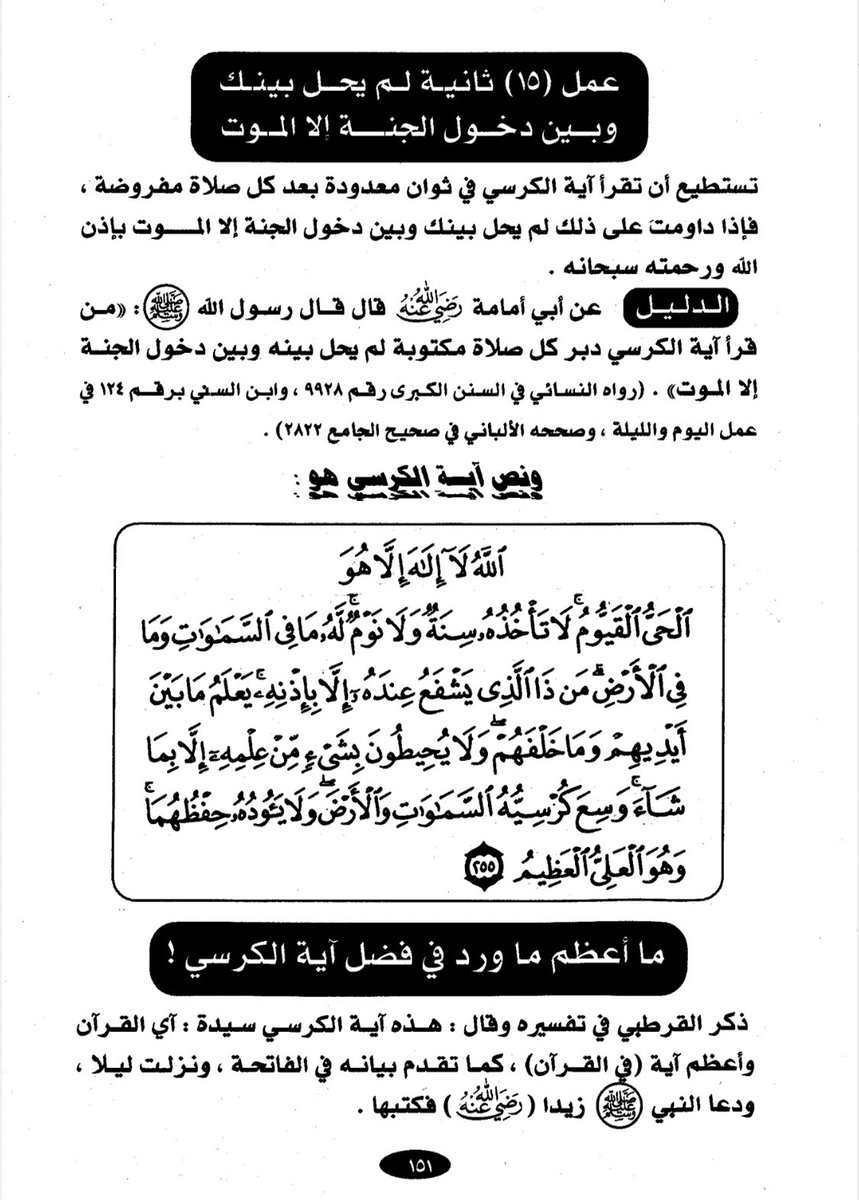 عمل (١٥) ثانية لم يحل بينك
وبين دخول الجنة إلا الموت
تستطيع أن تقرأ آية الكرسي في ثوان معدودة بعد كل صلاة مفروضة ،
فإذا داومت على ذلك لم يحل بينك وبين دخول الجنة إلا الموت بإذن
الله ورحمته سبحانه .
الدليل عن أبي أمامة رَضِيَ اللهُ عَنْهُ قال قال رسول الله ﷺ : «من
قرأ آية الكرسي دبر كل صلاة مكتوبة لم يحل بينه وبين دخول الجنة
إلا الموت» . (رواه النسائي في السنن الكبرى رقم ٩٩٢٨ ، وابن السني برقم ١٢٤ في
عمل اليوم والليلة ، وصححه الألباني في صحيح الجامع ٢٨٢٢) .
ونص آية الكرسي هو :
ٱللَّهُ لَآ إِلَٰهَ إِلَّا هُوَ
ٱلْحَىُّ ٱلْقَيُّومُ ۚ لَا تَأْخُذُهُۥ سِنَةٌ وَلَا نَوْمٌ ۚ لَّهُۥ مَا فِى ٱلسَّمَٰوَٰتِ وَمَا
فِى ٱلْأَرْضِ ۗ مَن ذَا ٱلَّذِى يَشْفَعُ عِندَهُۥٓ إِلَّا بِإِذْنِهِۦ ۚ يَعْلَمُ مَا بَيْنَ
أَيْدِيهِمْ وَمَا خَلْفَهُمْ ۖ وَلَا يُحِيطُونَ بِشَىْءٍ مِّنْ عِلْمِهِۦٓ إِلَّا بِمَا
شَآءَ ۚ وَسِعَ كُرْسِيُّهُ ٱلسَّمَٰوَٰتِ وَٱلْأَرْضَ ۖ وَلَا يَـُٔودُهُۥ حِفْظُهُمَا ۚ
وَهُوَ ٱلْعَلِىُّ ٱلْعَظِيمُ ٢٥٥
ما أعظم ما ورد في فضل آية الكرسي !
ذكر القرطبي في تفسيره وقال : هذه آية الكرسي سيدة : آي القرآن
وأعظم آية (في القرآن) ، كما تقدم بيانه في الفاتحة ، ونزلت ليلا ،
ودعا النبي ﷺ زيدا (رَضِيَ اللهُ عَنْهُ) فكتبها .
١٥١